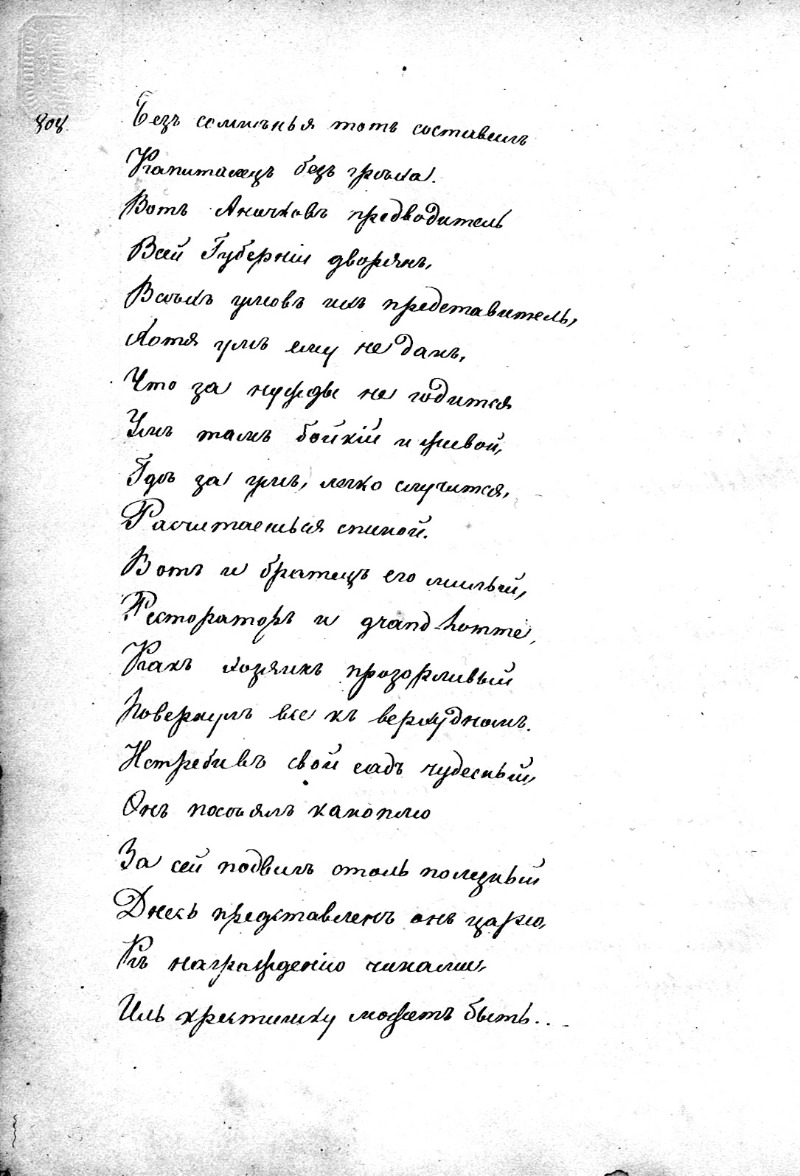 808.
Безъ сомнѣнья тотъ составилъ
Капиталецъ безъ грѣха.
Вотъ Аничковъ предводитель
Всей Губерніи дворянъ,
Всѣхъ умовъ ихъ представитель,
Хотя умъ ему не данъ,
Что за нужды не годится
Умъ тамъ бойкій и живой,
Гдѣ за умъ, легко случится,
Расчитаешься спиной.
Вотъ и братецъ его милый,
Рестораторъ и grand-homme,
Какъ хозяинъ прозорливый
Повернулъ все къ верху дномъ.
Истребивъ свой садъ чудесный,
Онъ посѣялъ каноплю
За сей подвигъ столь полезный
Днесь представленъ онъ царю,
Къ награжденію чинами,
Иль крестишку можетъ быть...